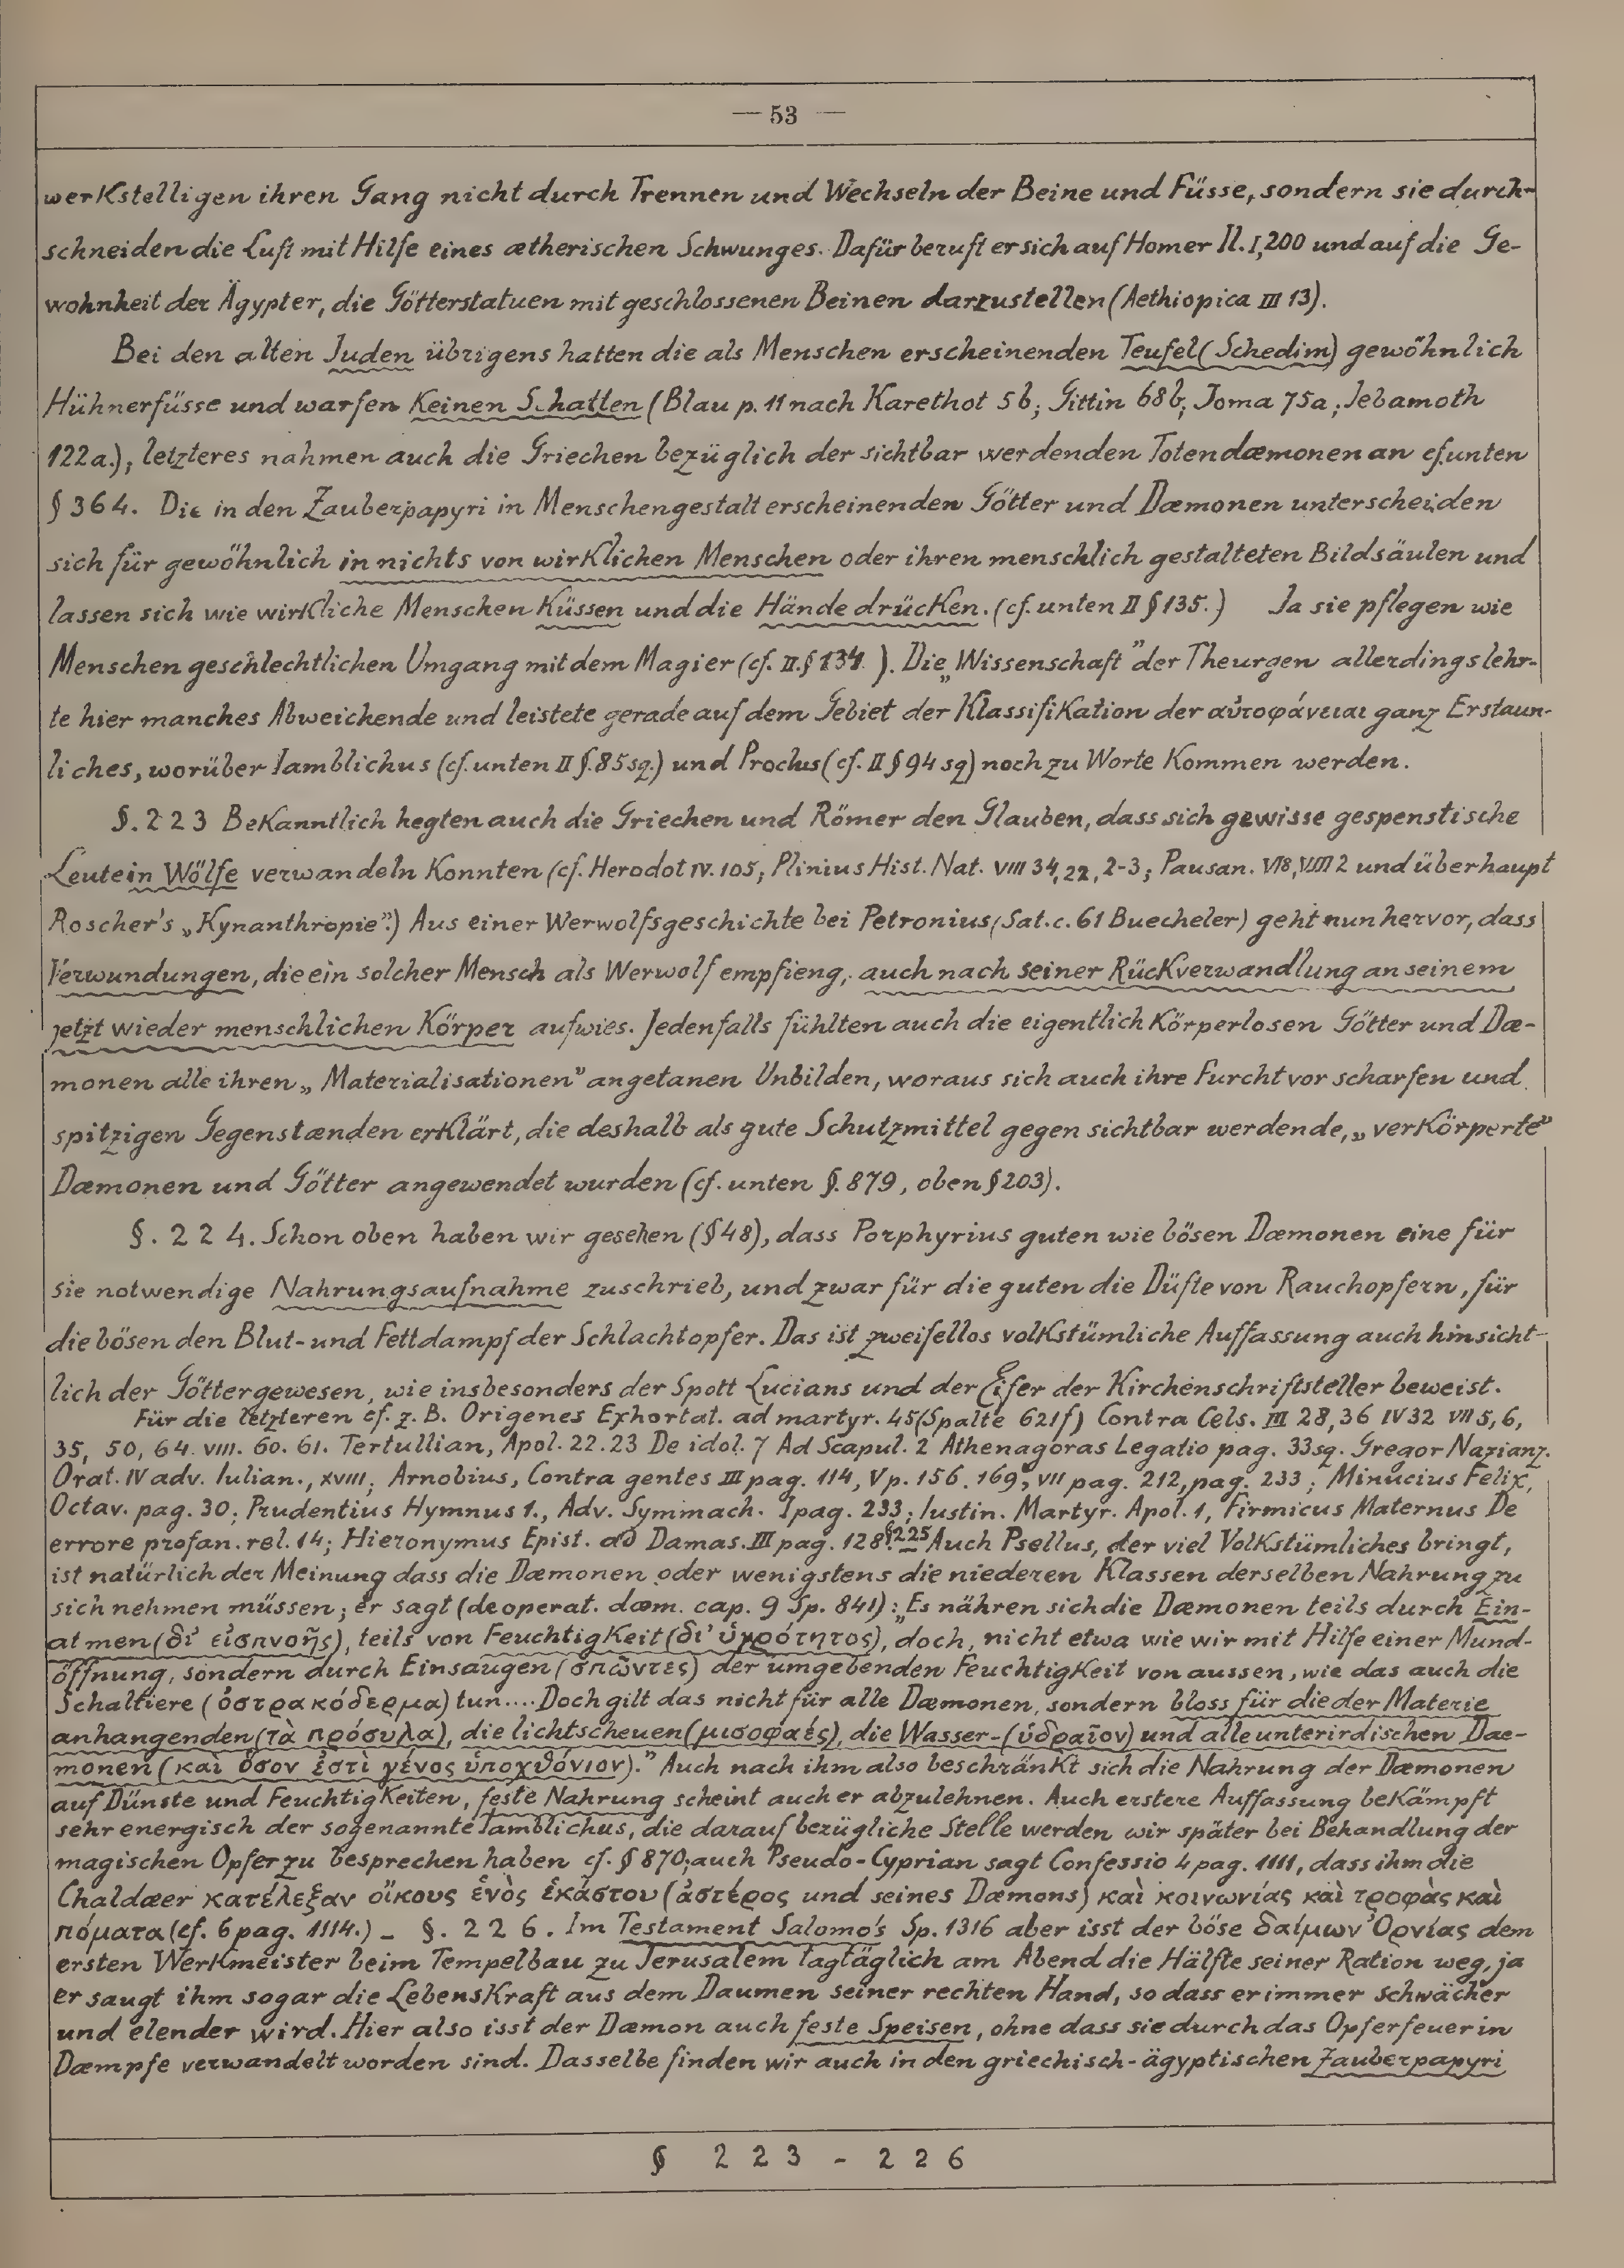 — 53 —
werkstelligen ihren Gang nicht durch Trennen und Wechseln der Beine und Füsse, sondern sie durch-
schneiden die Luft mit Hilfe eines ætherischen Schwunges. Dafür beruft er sich auf Homer Il. I,200 und auf die Ge-
wohnheit der Ägypter, die Götterstatuen mit geschlossenen Beinen darzustellen (Aethiopica III 13).
Bei den alten Juden übrigens hatten die als Menschen erscheinenden Teufel (Schedim) gewöhnlich
Hühnerfüsse und warfen keinen Schatten (Blau p. 11 nach Karethot 5b; Gittin 68b; Joma 75a; Jebamoth
122a.), letzteres nahmen auch die Griechen bezüglich der sichtbar werdenden Totendæmonen an cf. unten
§ 364. Die in den Zauberpapyri in Menschengestalt erscheinenden Götter und Dæmonen unterscheiden
sich für gewöhnlich in nichts von wirklichen Menschen oder ihren menschlich gestalteten Bildsäulen und
lassen sich wie wirkliche Menschen küssen und die Hände drücken. (cf. unten II § 135.) Ja sie pflegen wie
Menschen geschlechtlichen Umgang mit dem Magier (cf. II. § 134 ). Die „Wissenschaft” der Theurgen allerdings lehr-
te hier manches Abweichende und leistete gerade auf dem Gebiet der Klassifikation der αὐτοφάνειαι ganz Erstaun-
liches, worüber Iamblichus (cf. unten II §. 85 sq.) und Proclus (cf. II § 94 sq) noch zu Worte kommen werden.
§. 223 Bekanntlich hegten auch die Griechen und Römer den Glauben, dass sich gewisse gespenstische
Leute in Wölfe verwandeln konnten (cf. Herodot IV. 105; Plinius Hist. Nat. VIII 34, 22, 2-3; Pausan. VI 8, VIII 2 und überhaupt
Roscher's „Kynanthropie”.) Aus einer Werwolfsgeschichte bei Petronius (Sat. c. 61 Buecheler) geht nun hervor, dass
Verwundungen, die ein solcher Mensch als Werwolf empfieng, auch nach seiner Rückverwandlung an seinem
jetzt wieder menschlichen Körper aufwies. Jedenfalls fühlten auch die eigentlich körperlosen Götter und Dæ-
monen alle ihren „Materialisationen” angetanen Unbilden, woraus sich auch ihre Furcht vor scharfen und
spitzigen Gegenstænden erklärt, die deshalb als gute Schutzmittel gegen sichtbar werdende, „verkörperte”
Dæmonen und Götter angewendet wurden (cf. unten §. 879, oben § 203).
§. 224. Schon oben haben wir gesehen (§ 48), dass Porphyrius guten wie bösen Dæmonen eine für
sie notwendige Nahrungsaufnahme zuschrieb, und zwar für die guten die Düfte von Rauchopfern, für
die bösen den Blut- und Fettdampf der Schlachtopfer. Das ist zweifellos volkstümliche Auffassung auch hinsicht-
lich der Göttergewesen, wie insbesonders der Spott Lucians und der Eifer der Kirchenschriftsteller beweist.
Für die letzteren cf. z. B. Origenes Exhortat. ad martyr. 45 (Spalte 621f) Contra Cels. III 28,36 IV 32 VII 5, 6,
35, 50, 64. VIII. 60. 61. Tertullian, Apol. 22. 23 De idol. 7 Ad Scapul. 2 Athenagoras Legatio pag. 33 sq. Gregor Nazianz.
Orat. IV adv. Iulian., XVIII; Arnobius, Contra gentes III pag. 114, V p. 156. 169; VII pag. 212, pag. 233; Minucius Felix,
Octav. pag. 30; Prudentius Hymnus 1., Adv. Symmach. I pag. 233; Iustin. Martyr. Apol. 1, Firmicus Maternus De
errore profan. rel. 14; Hieronymus Epist. ad Damas. III pag. 128. § 225 Auch Psellus, der viel Volkstümliches bringt,
ist natürlich der Meinung dass die Dæmonen oder wenigstens die niederen Klassen derselben Nahrung zu
sich nehmen müssen; er sagt (de operat. dæm. cap. 9 Sp. 841): „Es nähren sich die Dæmonen teils durch Ein-
atmen (δι' εἰσπνοῆς), teils von Feuchtigkeit (δι' ὑγρότητος), doch, nicht etwa wie wir mit Hilfe einer Mund-
öffnung, sondern durch Einsaugen (σπῶντες) der umgebenden Feuchtigkeit von aussen, wie das auch die
Schaltiere (ὀστρακόδερμα) tun.... Doch gilt das nicht für alle Dæmonen, sondern bloss für die der Materie
anhangenden (τὰ πρόσυλα), die lichtscheuen (μισοφαές), die Wasser- (ὑδραῖον) und alle unterirdischen Dae-
monen (καὶ ὅσον ἐστὶ γένος ὑποχθόνιον).” Auch nach ihm also beschränkt sich die Nahrung der Dæmonen
auf Dünste und Feuchtigkeiten, feste Nahrung scheint auch er abzulehnen. Auch erstere Auffassung bekämpft
sehr energisch der sogenannte Iamblichus, die darauf bezügliche Stelle werden wir später bei Behandlung der
magischen Opfer zu besprechen haben cf. § 870; auch Pseudo-Cyprian sagt Confessio 4 pag. 1111, dass ihm die
Chaldæer κατέλεξαν οἴκους ἑνὸς ἑκάστου (ἀστέρος und seines Dæmons) καὶ κοινωνίας καὶ τροφὰς καὶ
πόματα (cf. 6 pag. 1114.) – §. 226. Im Testament Salomo's Sp. 1316 aber isst der böse δαίμων Ὀρνίας dem
ersten Werkmeister beim Tempelbau zu Jerusalem tagtäglich am Abend die Hälfte seiner Ration weg, ja
er saugt ihm sogar die Lebenskraft aus dem Daumen seiner rechten Hand, so dass er immer schwächer
und elender wird. Hier also isst der Dæmon auch feste Speisen, ohne dass sie durch das Opferfeuer in
Dæmpfe verwandelt worden sind. Dasselbe finden wir auch in den griechisch-ägyptischen Zauberpapyri
§ 223 - 226